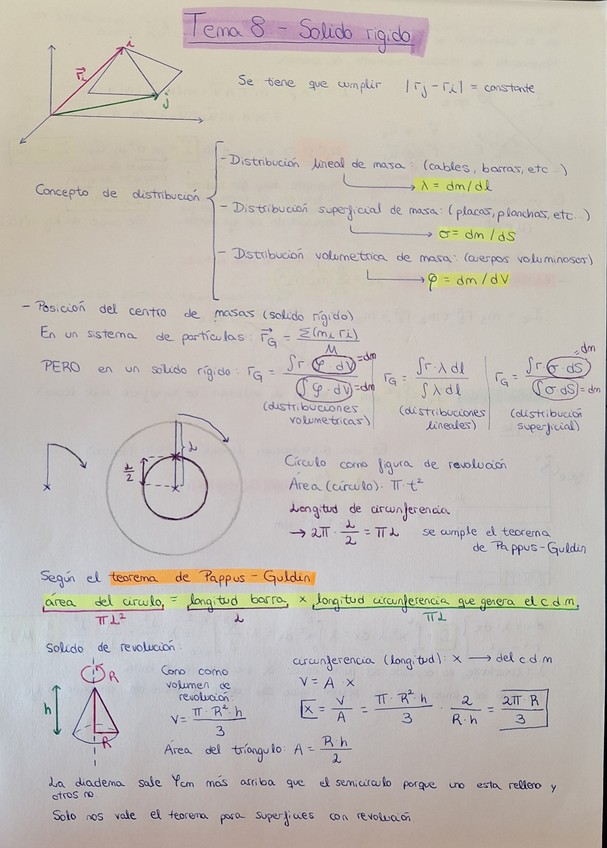 Tema 8 - Solido rigido
i
r⃗i
j
Se tiene que cumplir |rj - ri| = constante
Concepto de distribución
- Distribución lineal de masa: (cables, barras, etc...)
λ = dm/dl
- Distribución superficial de masa: (placas, planchas, etc...)
σ = dm/dS
- Dstribución volumetrica de masa: (cuerpos voluminosos)
φ = dm/dV
- Posición del centro de masas (solido rígido)
En un sistema de partículas: r⃗G = Σ(mi ri) / M
PERO en un solido rígido: rG = ∫r·φ·dV =dm / ∫φ·dV =dm
(distribuciones volumetricas)
rG = ∫r·λdl / ∫λdl
(distribuciones lineales)
rG = ∫r·σ·dS =dm / ∫σdS =dm
(distribución superficial)
L
L/2
Círculo como figura de revolución
Área (círculo): π·L²
Longitud de circunferencia
→ 2π · L/2 = πL se cumple el teorema
de Pappus-Guldin
Según el teorema de Pappus - Guldin
área del círculo = longitud barra × longitud circunferencia que genera el c d m.
πL² L πL
Solido de revolución:
R
h
R
Cono como
volumen de
revolución:
V = π·R²·h / 3
Área del triángulo: A = R·h / 2
circunferencia (longitud): x → del c d m
V = A · x
x = V/A = π·R²·h / 3 · 2 / R·h = 2π·R / 3
La diadema sale 4cm más arriba que el semicirculo porque uno esta relleno y
otros no
Solo nos vale el teorema para superficies con revolución